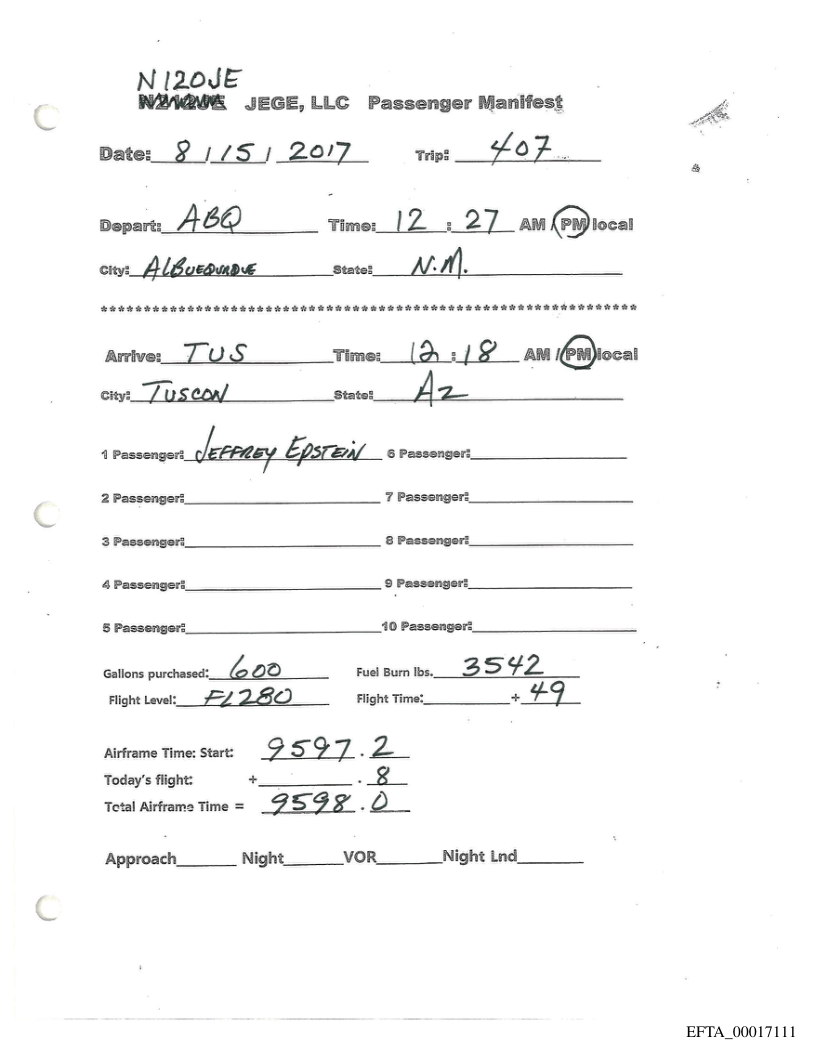 N120JE
JEGE, LLC Passenger Manifest
Date: 8/15/2017 Trip: 407
Depart: ABQ Time: 12 : 27 AM / PM local
City: ALBUEQURQUE State: N.M.
******************************************************************
Arrive: TUS Time: 12 : 18 AM / PM local
City: TUSCON State: AZ
1 Passenger: JEFFREY EPSTEIN 6 Passenger:
2 Passenger: 7 Passenger:
3 Passenger: 8 Passenger:
4 Passenger: 9 Passenger:
5 Passenger: 10 Passenger:
Gallons purchased: 600 Fuel Burn lbs. 3542
Flight Level: FL280 Flight Time: + 49
Airframe Time: Start: 9597.2
Today's flight: + .8
Total Airframe Time = 9598.0
Approach Night VOR Night Lnd
EFTA_00017111